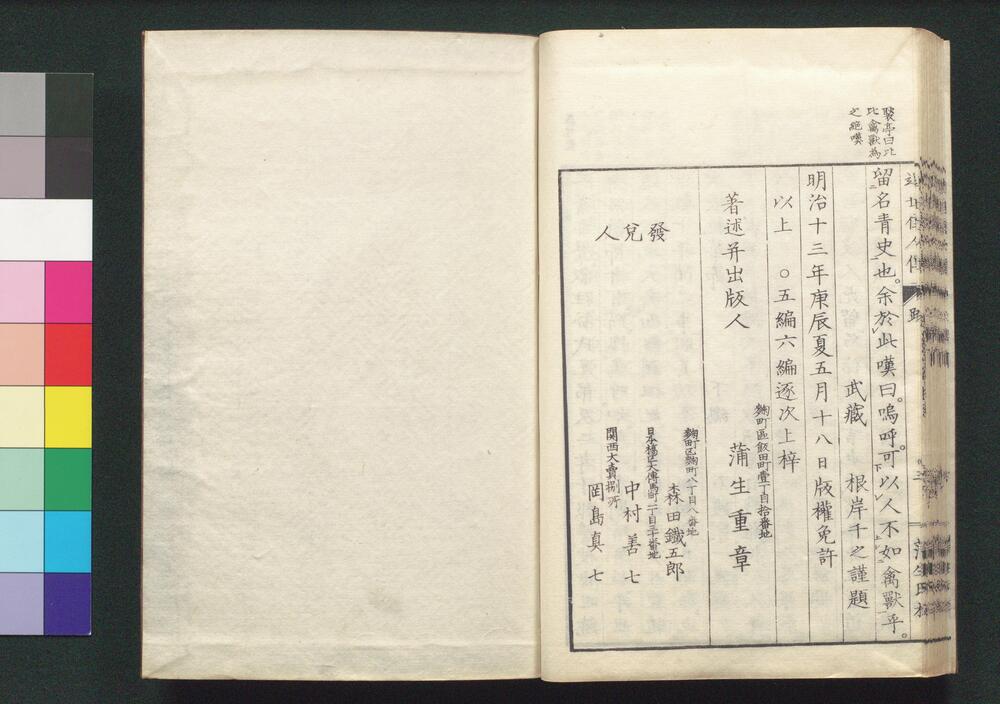 褧亭曰以
比禽獸為
之絶嘆
近世偉人傳
蒲生氏校
留名青史也。余於此嘆曰。嗚呼。可以人不如禽獸乎。
武藏 根岸千之謹題
明治十三年庚辰夏五月十八日版權免許
以上 ○五編六編逐次上梓
麴町區飯田町壹丁目拾番地
著述并出版人 蒲生重章
發兌人
麴町區麴町八丁目八番地
森田鐵五郎
日本橋區大傳馬町二丁目三十番地
中村善七
関西大賣捌所
岡島真七